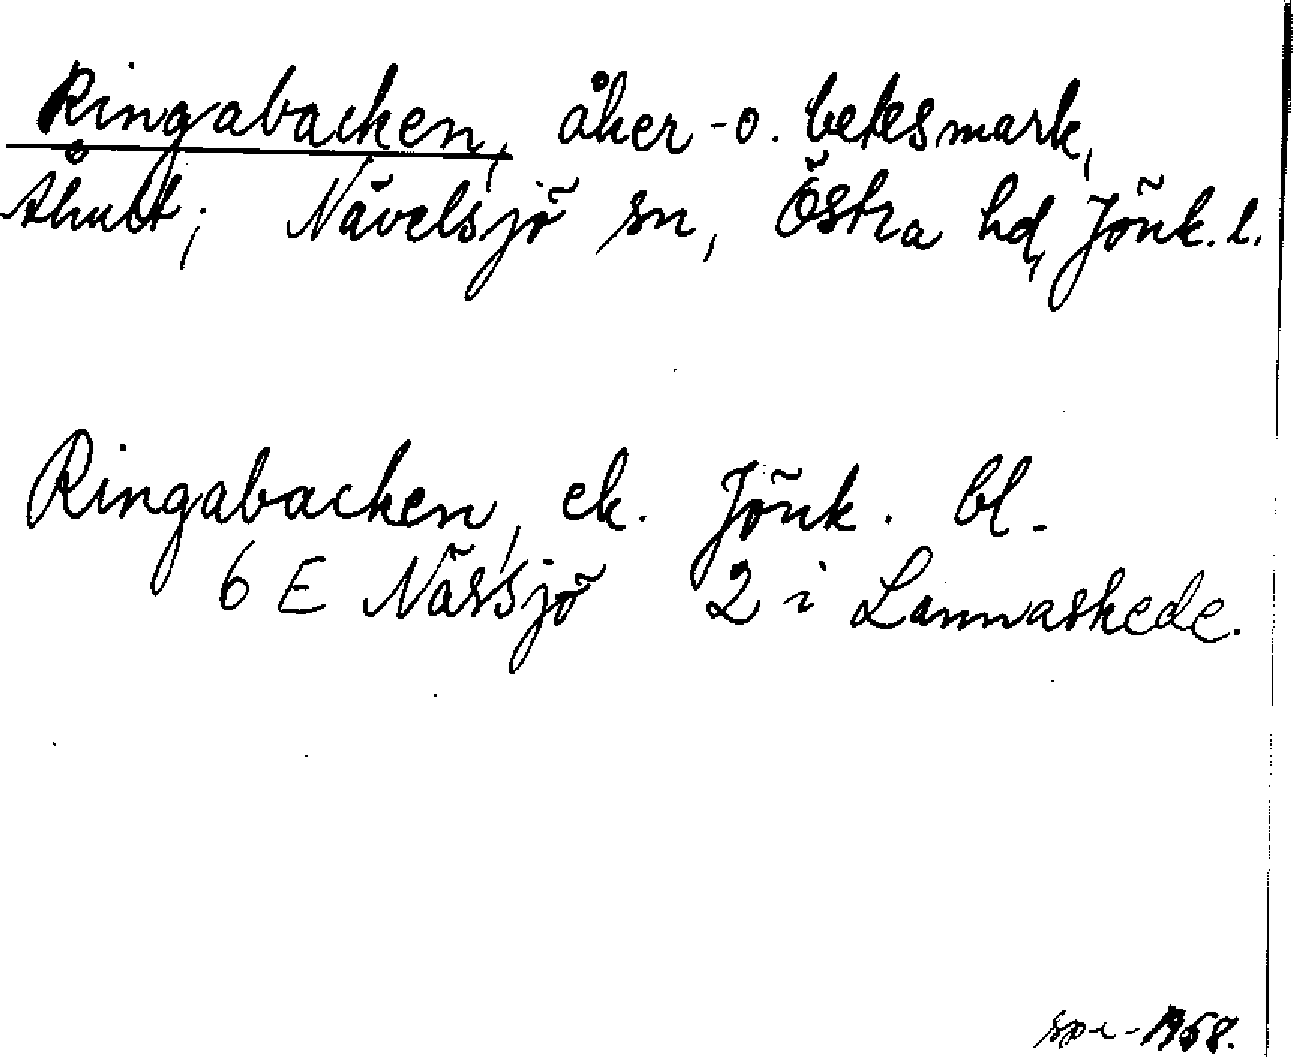 Ringabacken, åker- o. betesmark,
Åhult; Nävelsjö sn, Östra hd, Jönk. l.
Ringabacken, ek. Jönk. bl.
6 E Nässjö 2 i Lannaskede.
1968.